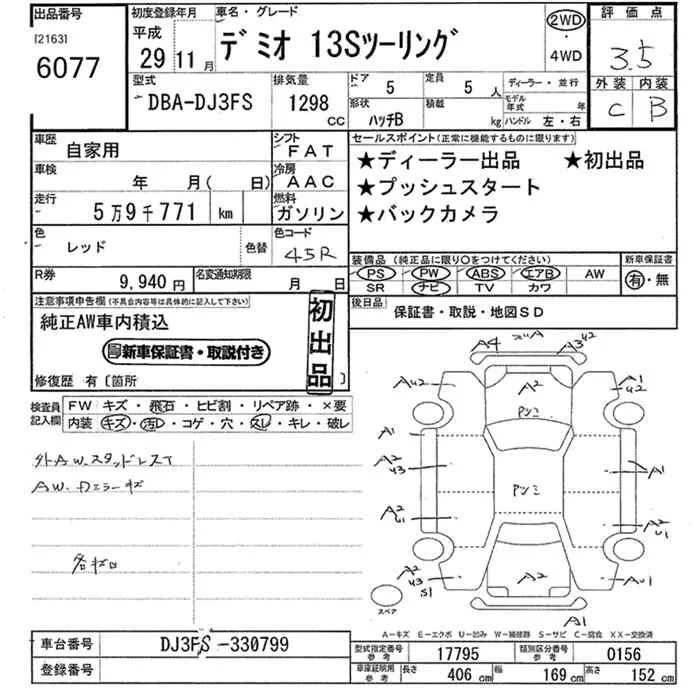 出品番号
[2163]
6077
初度登録年月
平成
29 11月
車名・グレード
デミオ 13Sツーリング
2WD
・
4WD
評価点
3.5
外装 内装
C B
型式
DBA-DJ3FS
排気量
1298
cc
ドア 5
定員 5 人
ディーラー・並行
形状 ハッチB
積載 kg
モデル年式 年
ハンドル 左・右
車歴 自家用
シフト FAT
車検 年 月( 日)
冷房 AAC
走行 5万9千771 km
燃料 ガソリン
色 レッド
色替
色コード 45R
R券 9,940円
名変通知期限 月 日
セールスポイント(正常に機能するものに限ります)
★ディーラー出品 ★初出品
★プッシュスタート
★バックカメラ
装備品 (純正品に限り○をつけてください)
PS PW ABS エアB AW
SR ナビ TV カワ
新車保証書
有・無
後日品 保証書・取説・地図SD
注意事項申告欄(不具合内容等は具体的に記入して下さい)
純正AW車内積込
新車保証書・取説付き
初出品
修復歴 有〔箇所 〕
検査員記入欄
FW キズ・飛石・ヒビ割・リペア跡・×要
内装 キズ・汚D・コゲ・穴・スレ・キレ・破レ
外AW.スタッドレスT
AW.Dミラーキズ
各キズロ
A4 A3 42
A42 A2 A1 42
A1
A2 43 A1
A2 U1 A2 U1
A2 43 S1 A2 AU1
A1
スペア
A-キズ E-エクボ U-凹み W-補修跡 S-サビ C-腐食 XX-交換済
車台番号 DJ3FS-330799
登録番号
型式指定番号 参考 17795
類別区分番号 参考 0156
車庫証明用 参考 長さ 406 cm 幅 169 cm 高さ 152 cm